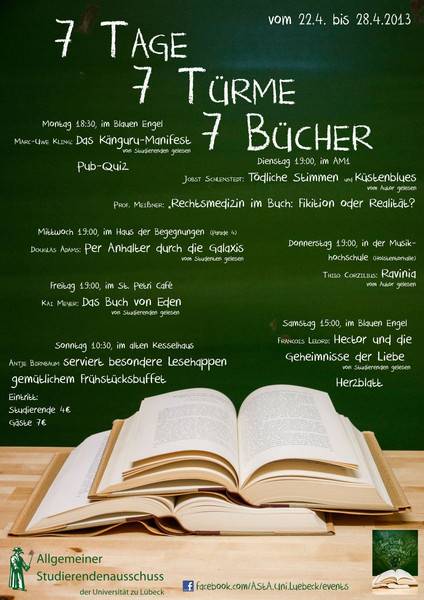 vom 22.4. bis 28.4.2013
7 Tage
7 Türme
7 Bücher
Montag 18:30, im Blauen Engel
Marc-Uwe Kling: Das Känguru-Manifest
von Studierenden gelesen
Pub-Quiz
Dienstag 19:00, im AM1
Jobst Schlenstedt: Tödliche Stimmen und Küstenblues
vom Autor gelesen
Prof. Meißner: „Rechtsmedizin im Buch: Fikition oder Realität?
Mittwoch 19:00, im Haus der Begegnungen (Parade 4)
Douglas Adams: Per Anhalter durch die Galaxis
vom Studenten gelesen
Donnerstag 19:00, in der Musik-
hochschule (Holstentorhalle)
Thilo Corzilius: Ravinia
vom Autor gelesen
Freitag 19:00, im St. Petri Café
Kai Meyer: Das Buch von Eden
von Studierenden gelesen
Samstag 15:00, im Blauen Engel
Francois Lelord: Hector und die
Geheimnisse der Liebe
von Studierenden gelesen
Herzblatt
Sonntag 10:30, im alten Kesselhaus
Antje Bornbaum serviert besondere Lesehappen
gemütlichem Frühstücksbuffet
Eintritt:
Studierende 4€
Gäste 7€
Allgemeiner
Studierendenausschuss
der Universität zu Lübeck
facebook.com/AStA.Uni.Luebeck/events